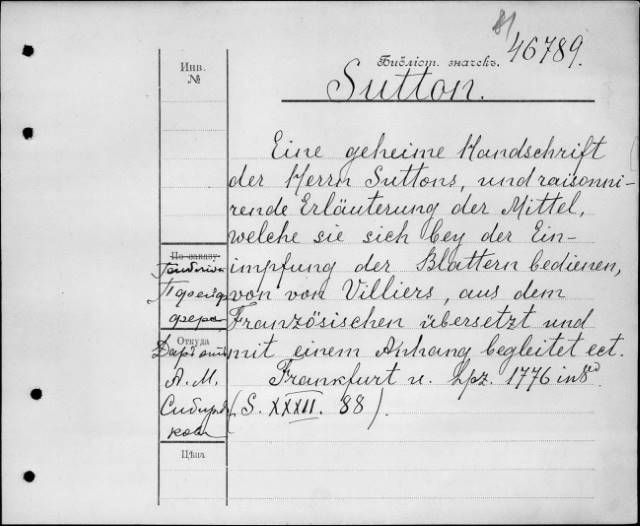 81
46789.
Библіот. значекъ.
Sutton.
Инв.
№
Eine geheime Handschrift
der Herrn Suttons, und raisonni-
rende Erläuterung der Mittel,
welche sie sich bey der Ein-
impfung der Blattern bedienen,
von von Villiers, aus dem
Französischen übersetzt und
mit einem Anhang begleitet ect.
Frankfurt u. Lpz. 1776 in 8°
(S. XXXII. 88).
По заказу
Откуда
Даръ отъ
А. М.
Сибиря-
кова
Цѣна